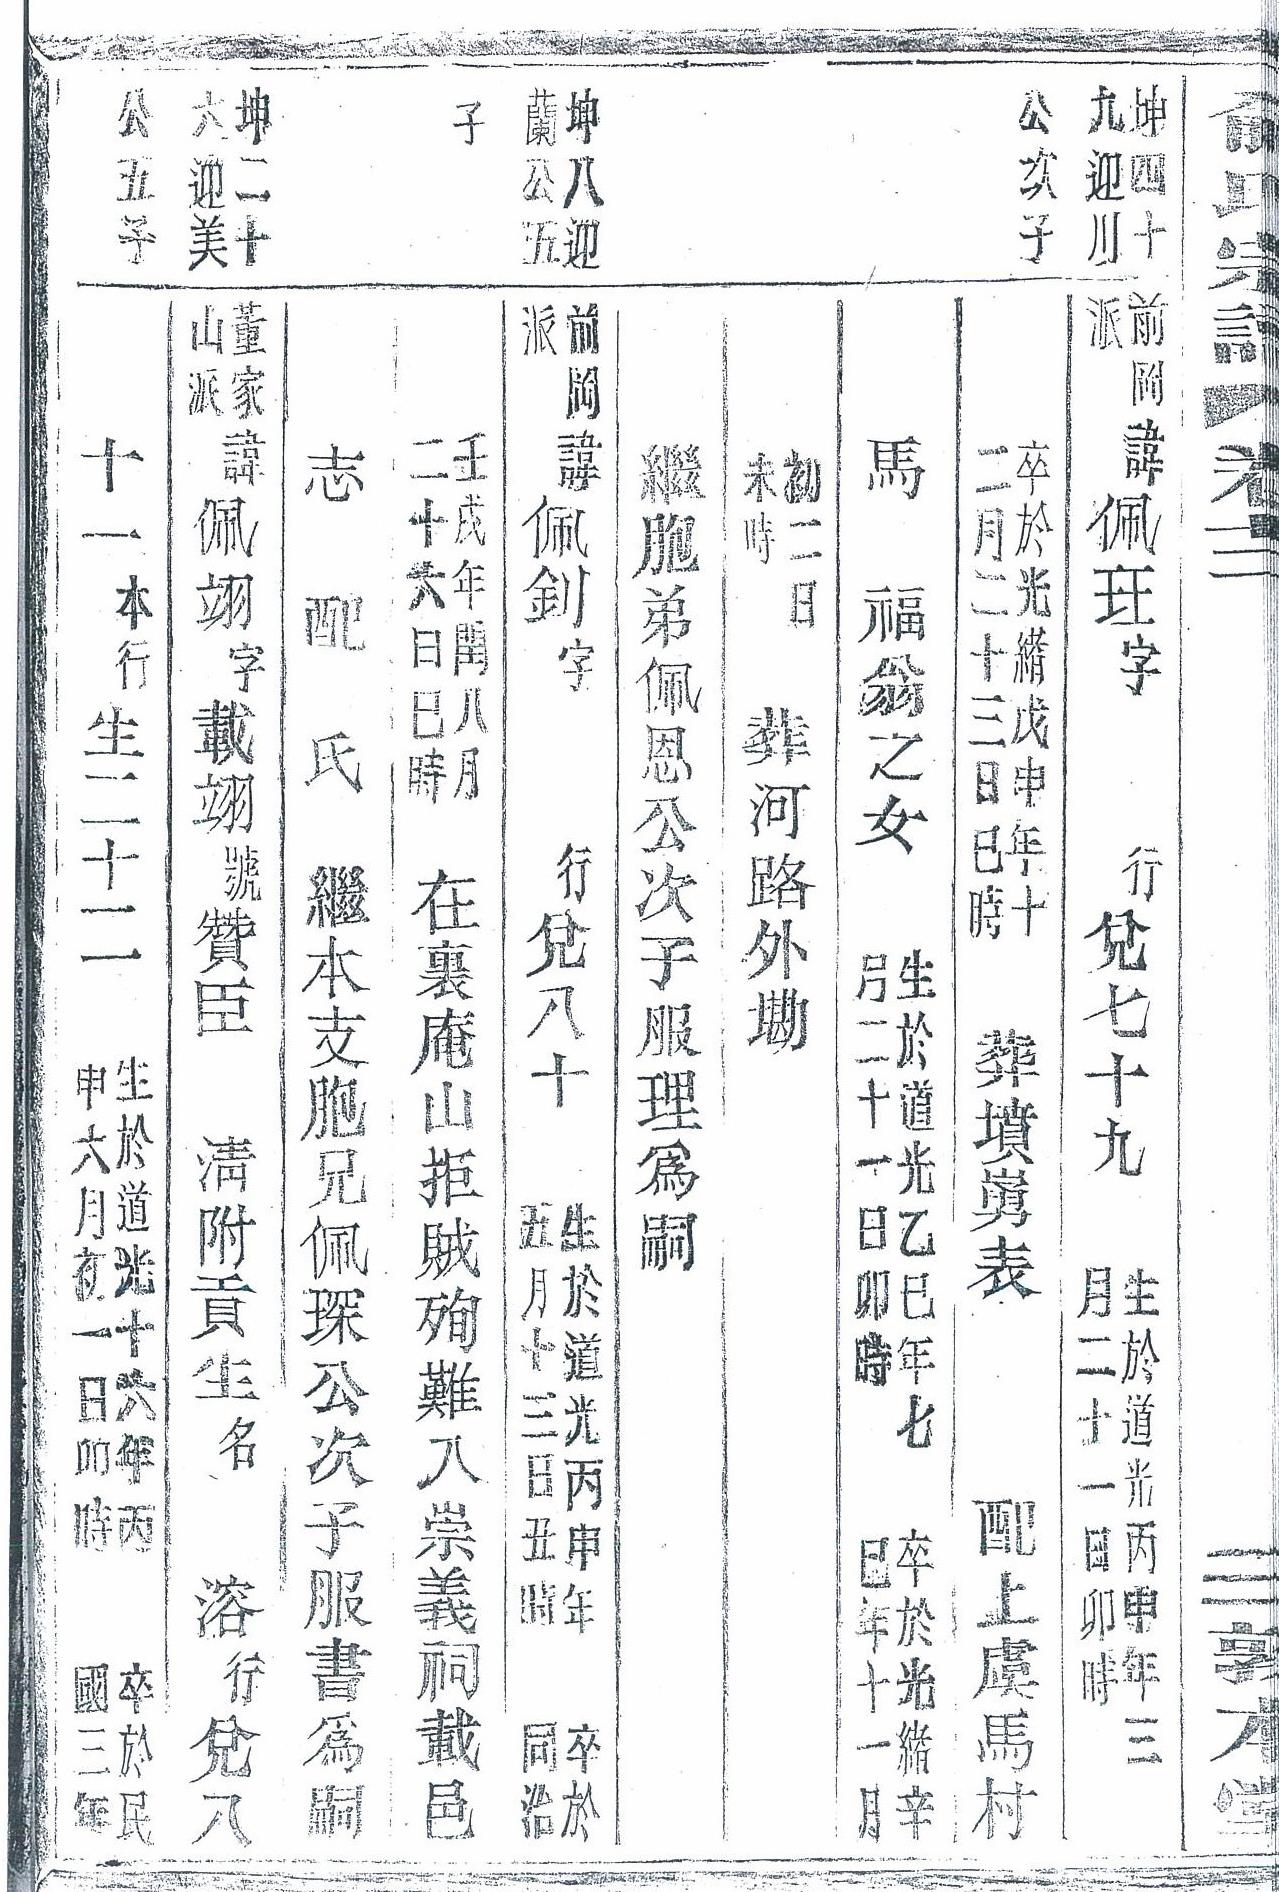 俞氏宗譜 卷二 三 敦本堂
坤四十
九迎川
公次子
前岡派諱佩玨字 行兌七十九 生於道光丙申年三月二十一日卯時
卒於光緒戊申年十二月二十三日巳時 葬墳表 配上虞馬村
馬 福翁之女 生於道光乙巳年七月二十一日卯時 卒於光緒辛巳年十一月
初二日未時 葬河路外墈
繼胞弟佩恩公次子服理爲嗣
坤八迎
蘭公五
子
前岡派諱佩釗字 行兌八十 生於道光丙申年五月十三日丑時 卒於同治
壬戌年閏八月二十六日巳時 在裏庵山拒賊殉難入崇義祠載邑
志 配 氏 繼本支胞兄佩琛公次子服書爲嗣
坤二十
六迎美
公五子
董家山派諱佩翊字載翊號贊臣 清附貢生名 溶行兌八
十一本行生二十二 生於道光十六年丙申六月初一日卯時 卒於民國三年